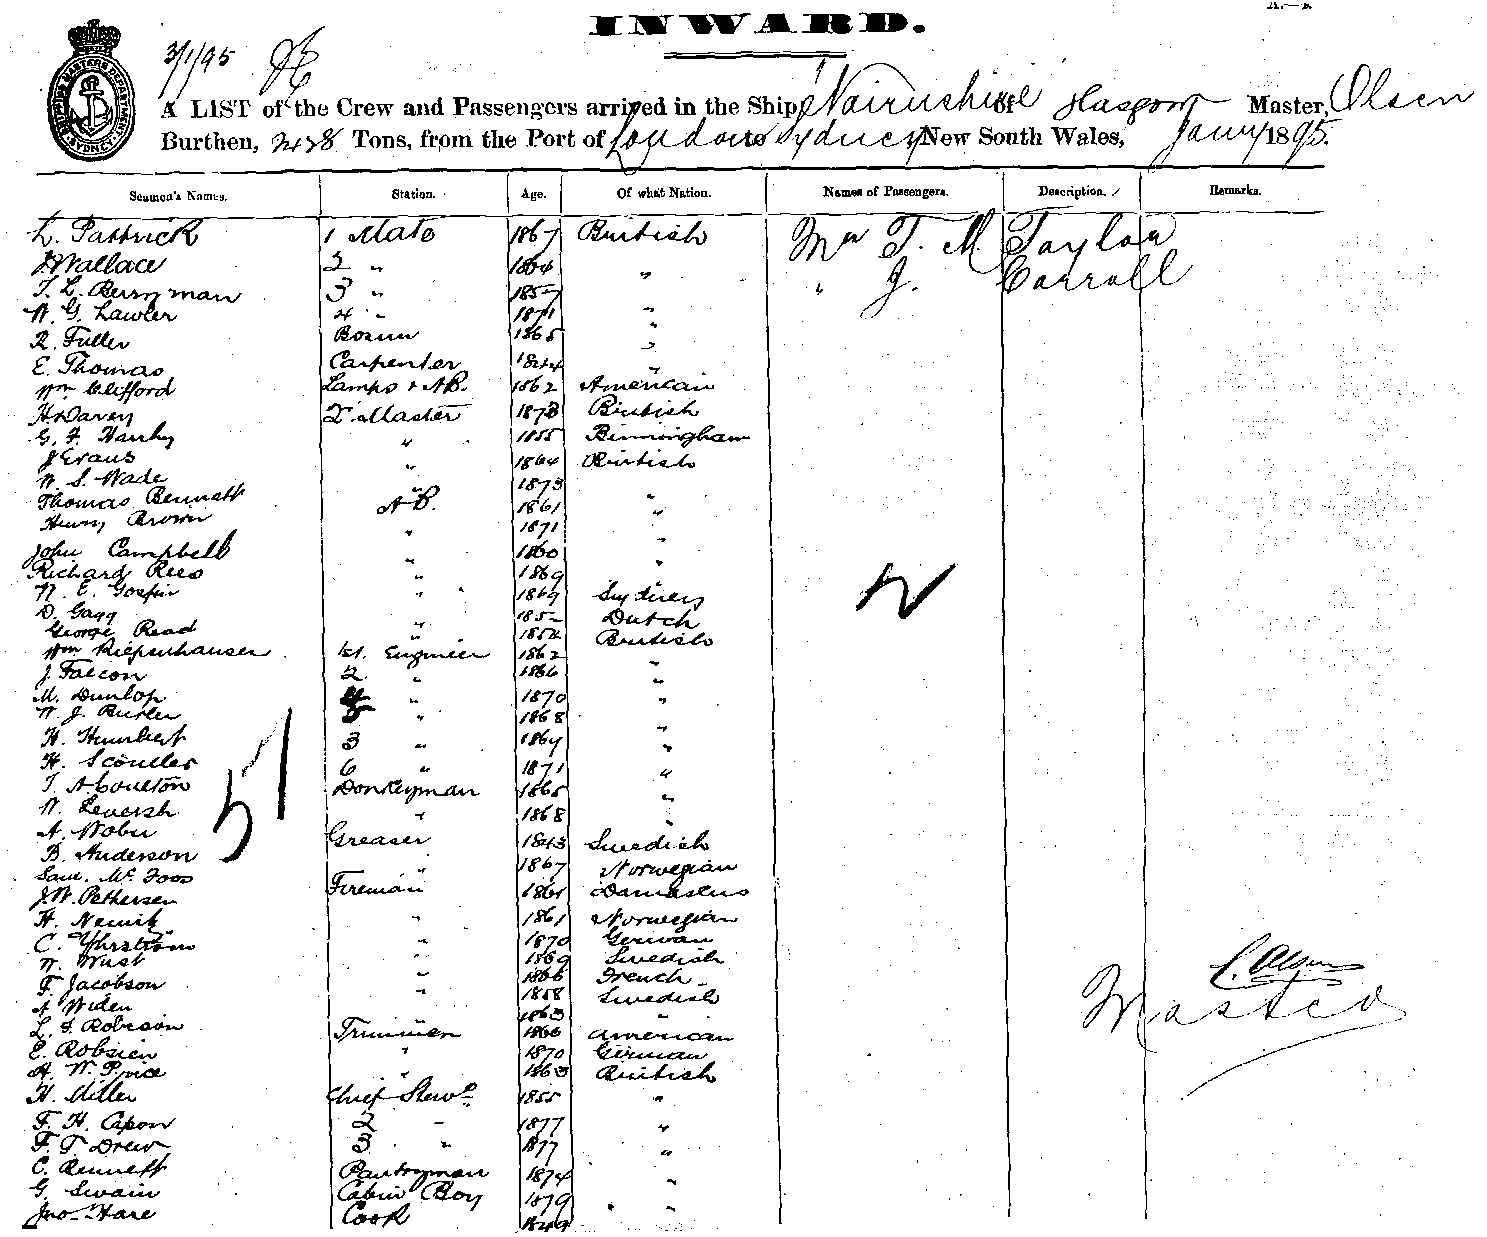 INWARD.
3/1/95
A LIST of the Crew and Passengers arrived in the Ship, Nairnshire of Glasgow Master, Olsen
Burthen, 2428 Tons, from the Port of London to Sydney New South Wales, Jany 1895.
Seamen's Names. Station. Age. Of what Nation. Names of Passengers. Description. Remarks.
L. Pattrick 1 Mate 1867 British Mr T. M. Taylor
J Wallace 2 " 1864 " " J. Carroll
T. L. Berryman 3 " 1857
W. G. Lawler 4 " 1871 "
R. Fuller Bosun 1865 "
E. Thomas Carpenter 1844 "
Wm Clifford Lamps & AB. 1862 American
H Davey Qr Master 1873 British
G. F. Hanby " 1855 Birmingham
J Evans " 1864 British
W. S. Wade " 1873
Thomas Bennett AB. 1861 "
Henry Brown " 1871 "
John Campbell " 1860 "
Richard Rees " 1869
N. E. " 1869
D. Gagg 1852 Dutch
George Read " 1852 British
Wm Riepenhausen 1st. Engineer 1862 "
J. Falcon 2 " 1866 "
M. Dunlop 4 " 1870 "
W. J. Butler 5 " 1868 "
H. Humbert 3 " 1864 "
H. Scouller 6 " 1871 "
T. A Coulton Donkeyman 1865 "
W. " 1868 "
A. Greaser 1843 Swedish
B. Anderson " 1867 Norwegian
Saml. Mc Foos Fireman Damascus
J. W. Pettersen " 1861 Norwegian
H. " 1870 German
C. " 1869 Swedish
W. Wust " 1866 French
F. Jacobson " 1858 Swedish
A Widen 1863 "
L. F. Robison Trimmer 1866 American
E. Robsien " 1870 German
H. W. Price " 1863 British
H. Miller Chief Stewd. 1855 "
F. H. Capon 2 " 1877 "
F. T. Drew 3 " 1877 "
C. Bennett Pantryman 1874 "
G. Swain Cabin Boy 1879 "
Jno Hare Cook 1849
51
2
C. Olsen
Master